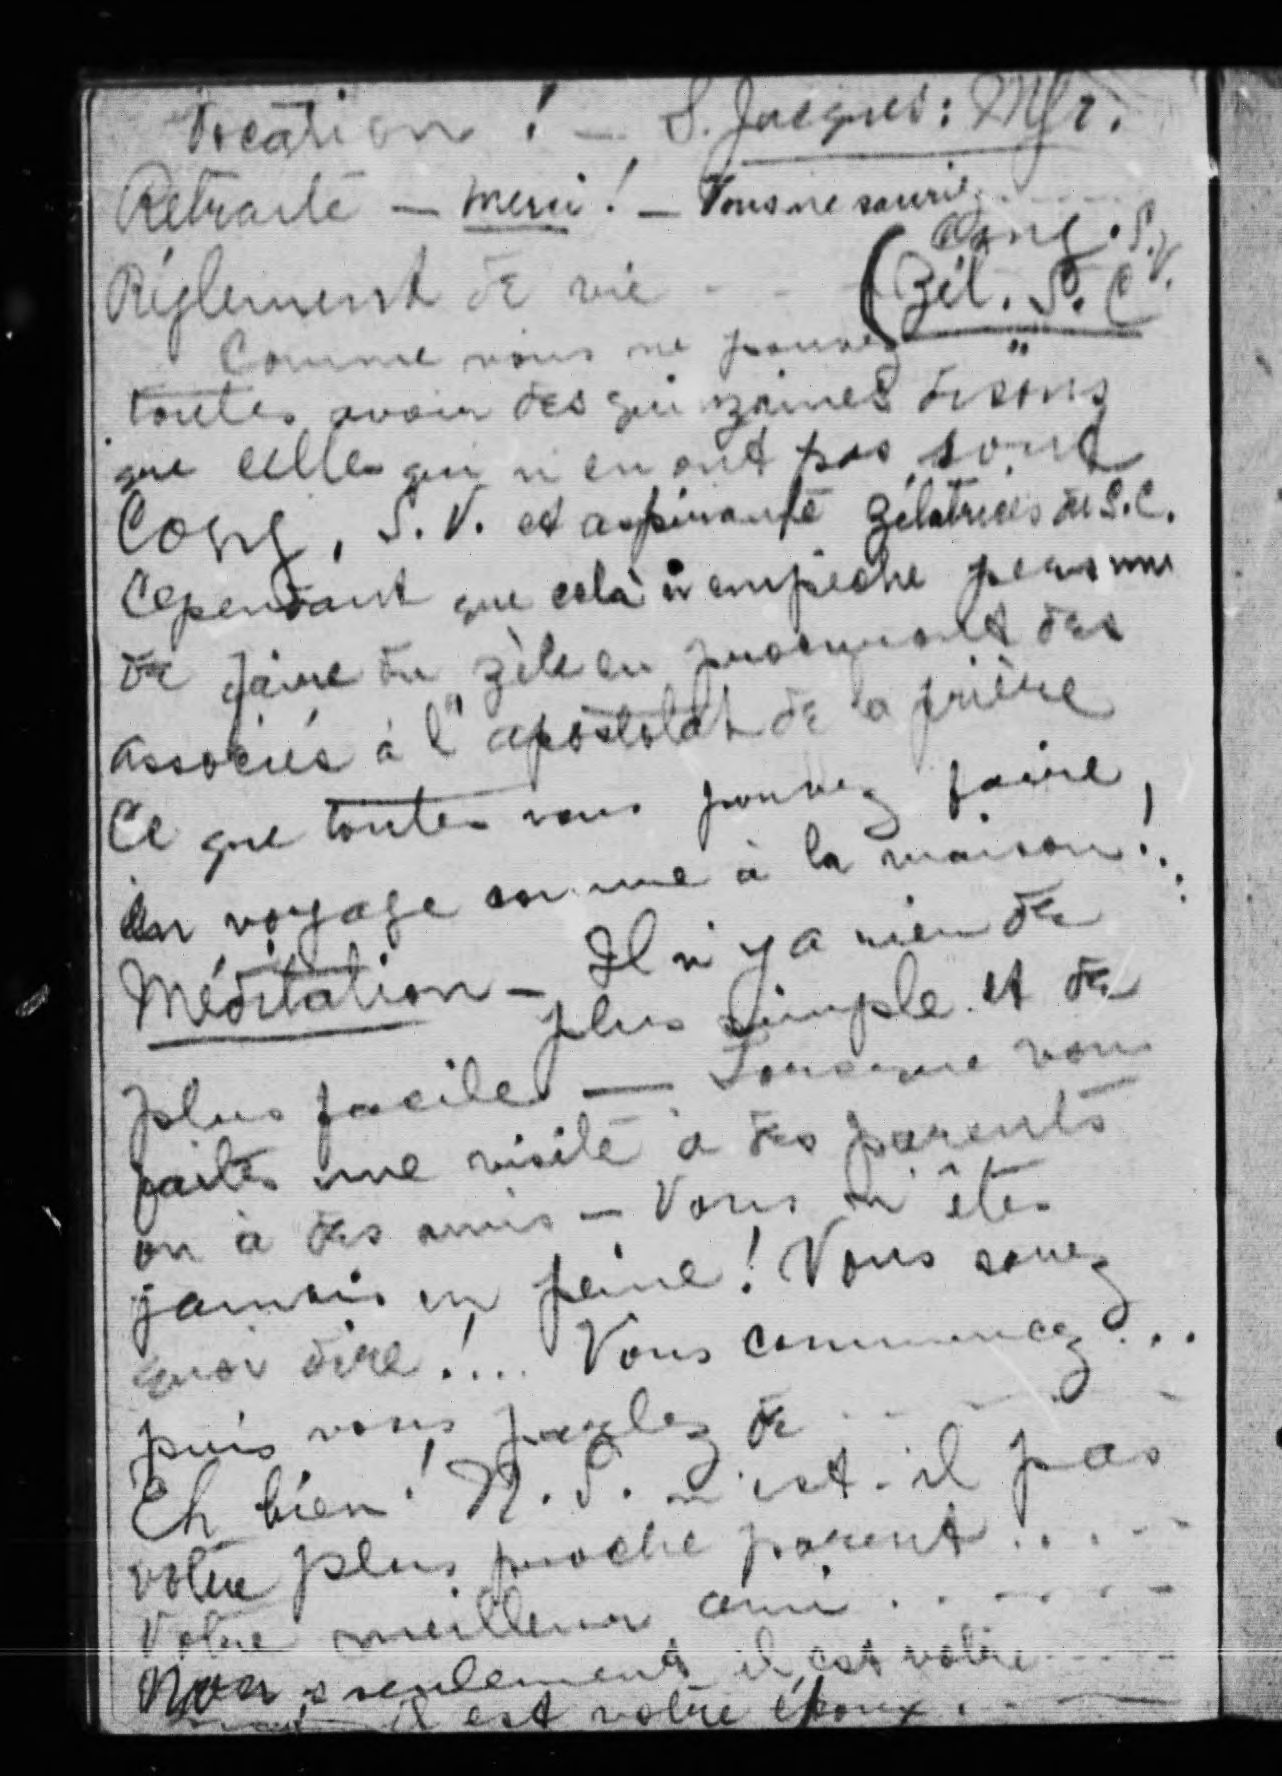 Vocation ! — S. Jacques : Mgr.
Retraite — merci ! — Vous ne sauriez - - - -
Cong. S.V.
Règlement de vie - - - (Zél. S. C
Comme vous ne pouvez
toutes avoir des quinzaines disons
que celles qui n'en ont pas sont
Cong. S. V. et aspirante zélatrices du S.C.
Cependant que cela n'empêche personne
de faire du zèle en procurant des
associés à l'"apostolat de la prière
Ce que toutes vous pouvez faire,
en voyage comme à la maison !..
Méditation — Il n'y a rien de
plus simple et de
plus facile — Lorsque vous
faites une visite à des parents
ou à des amis — Vous n'êtes
jamais en peine ! Vous savez
quoi dire !.... Vous commencez ...
puis vous parlez de - - - - -
Eh bien ! N. S. n'est-il pas
votre plus proche parent . . . - -
Votre meilleur ami . . - - . . -
Non seulement il est votre - - - -
il est votre époux . - —